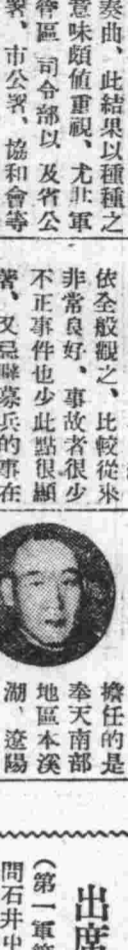 奏曲、此結果以種種之
意味頗値重視、尤其軍
管區司令部以及省公
署、市公署、協和會等
依全般觀之、比較從來
非常良好、事故者很少
不正事件也少此點很顯
著、又忌避募兵的事在
擔任的是
奉天南部
地區本溪
湖、遼陽
出席
(第一軍管
問石井出